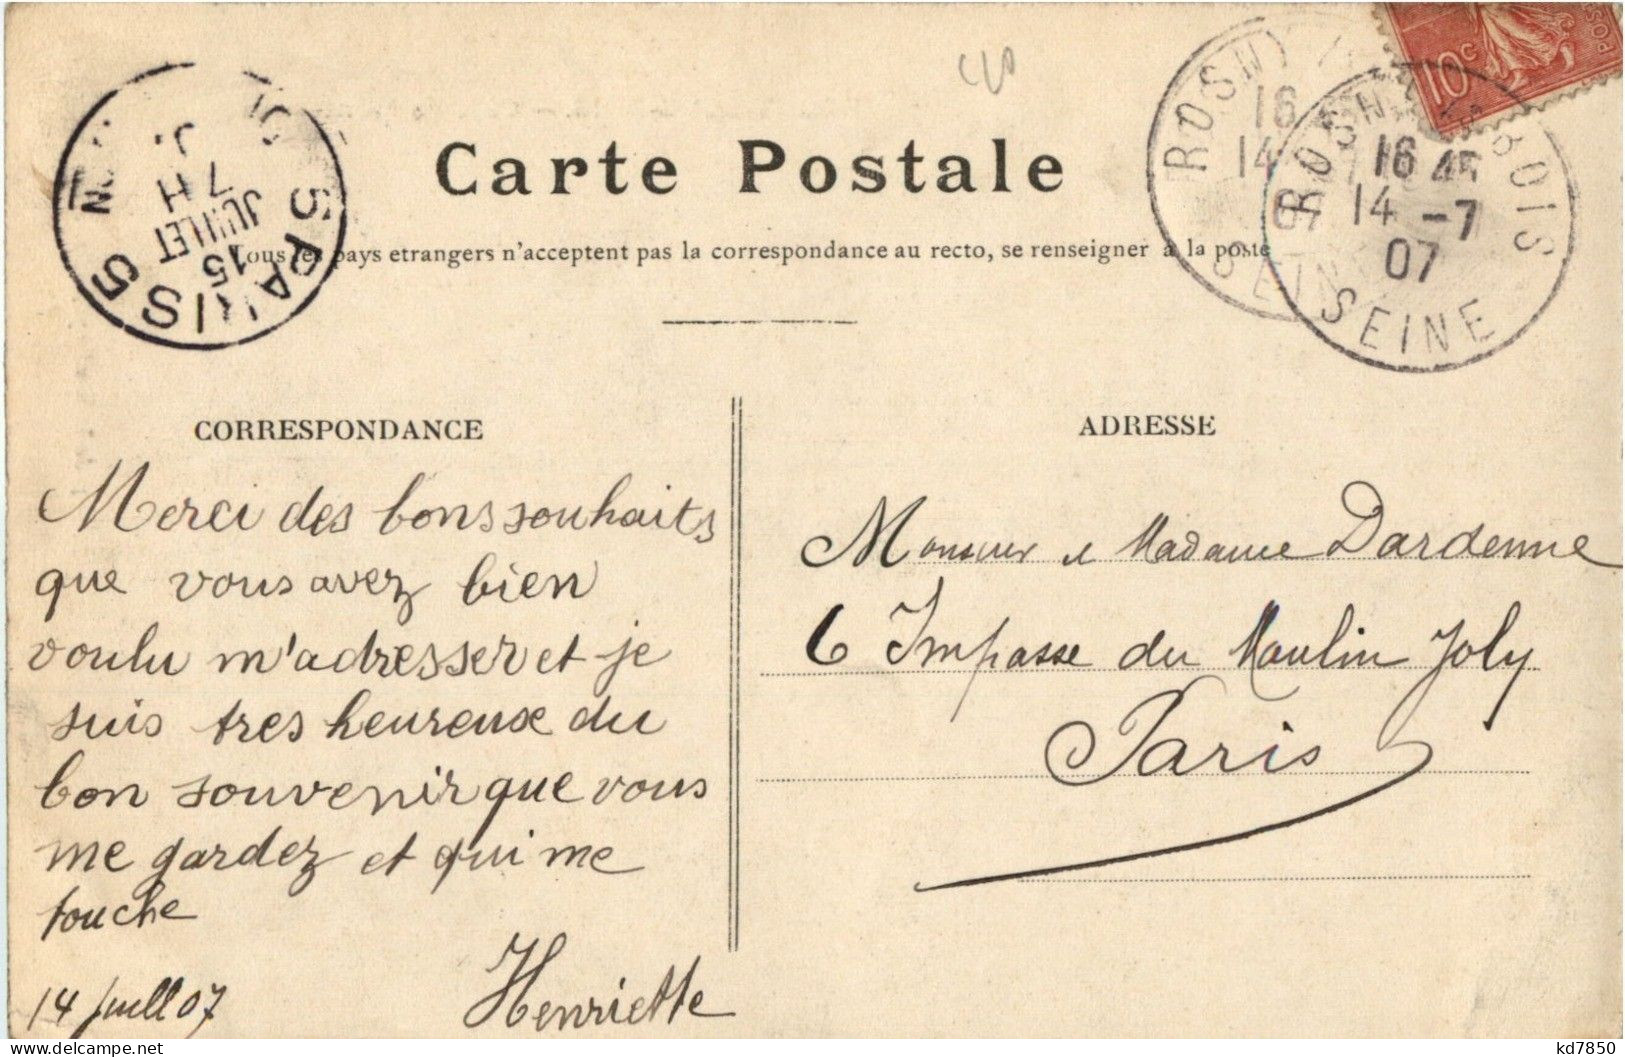 Carte Postale
Tous les pays etrangers n'acceptent pas la correspondance au recto, se renseigner à la poste
CORRESPONDANCE
Merci des bons souhaits
que vous avez bien
voulu m'adresser et je
suis tres heureuse du
bon souvenir que vous
me gardez et qui me
touche
14 Juill 07
Henriette
ADRESSE
Monsieur et Madame Dardenne
6 Impasse du Moulin Joly
Paris
10c
POS
ROSNY
16
14
07
SEIN
ROSNY BOIS
16 45
14 -7
07
SEINE
5 PARIS 5
7 H
15
JUILLET
delcampe.net
kd7850